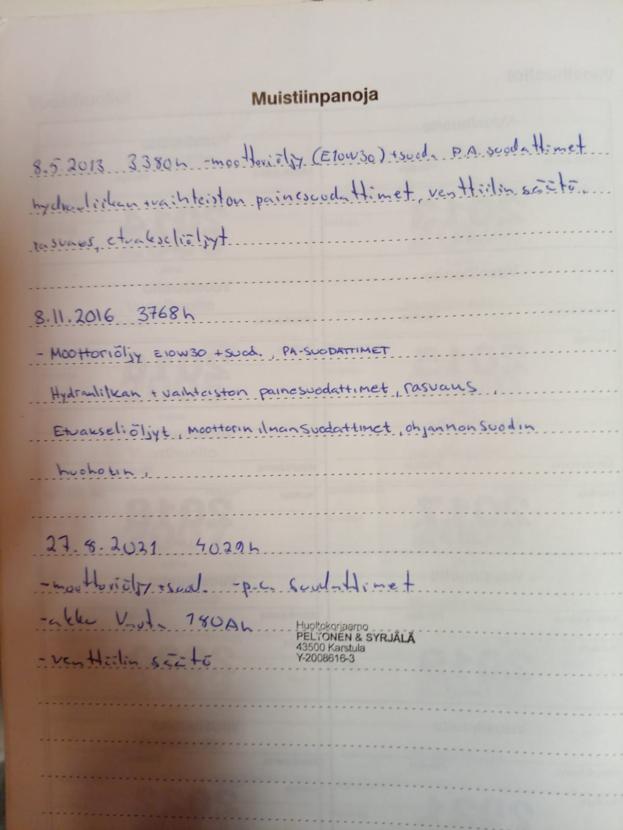 Muistiinpanoja
8.5.2013 3380h -moottoriöljy (E10W30) +suod. P.A. suodattimet
hydrauliikan + vaihteiston painesuodattimet, venttiilin säätö,
rasvaus, etuakseliöljyt
8.11.2016 3768h
- Moottoriöljy E10W30 + suod., PA-SUODATTIMET
Hydrauliikan + vaihteiston painesuodattimet, rasvaus,
Etuakseliöljyt, moottorin ilmansuodattimet, ohjaamon suodin
huohotin,
27.8.2021 4029h
-moottoriöljy +suod. -p.a. suodattimet
-akku 180Ah
-venttiilin säätö
Huoltokorjaamo
PELTONEN & SYRJÄLÄ
43500 Karstula
Y-2008616-3